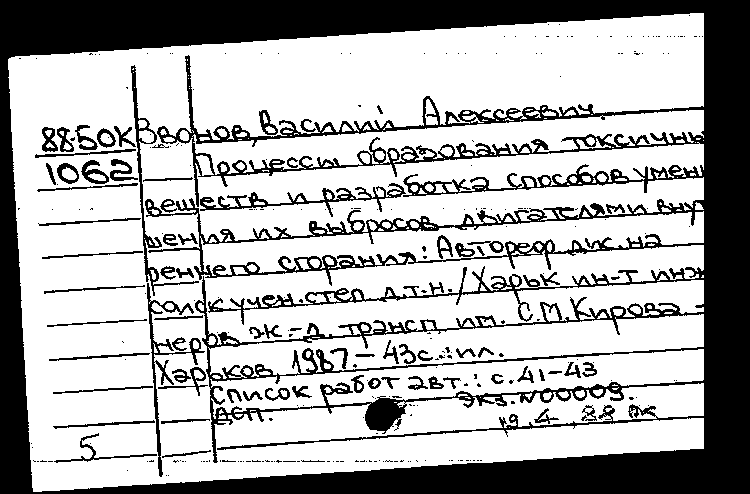 88-50К Звонов, Василий Алексеевич.
1062 Процессы образования токсичны
веществ и разработка способов умен
шения их выбросов двигателями вну
реннего сгорания: Автореф дис. на
соиск учен. степ д.т.н. / Харьк ин-т инж
неров ж.-д. трансп им. С.М. Кирова -
Харьков, 1987. - 43с.: ил.
Список работ авт.: с. 41-43
ДСП. Экз. N00009.
19.4.88
5